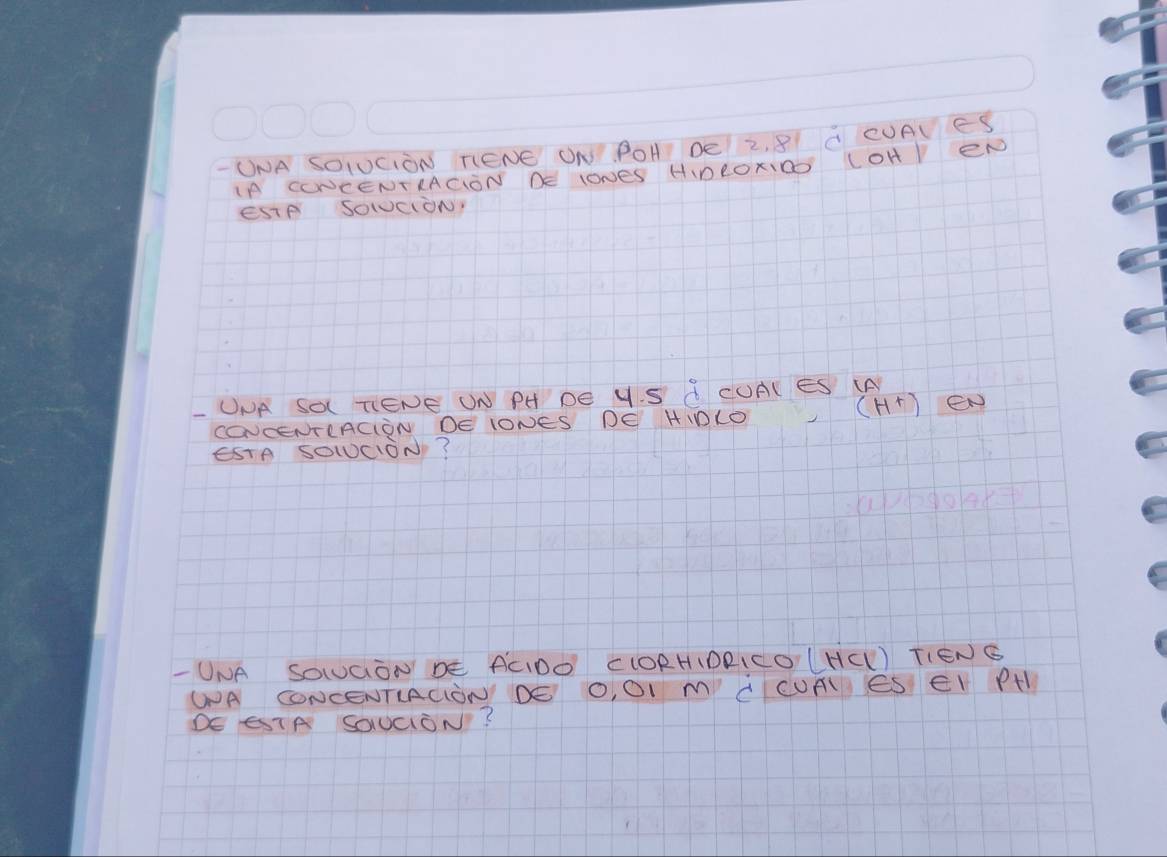 - UNA SOLUCIÓN TIENE UN POH DE 2.8 ¿ CUAL ES
LA CONCENTRACIÓN DE IONES HIDROXIDO (OH) EN
ESTA SOLUCIÓN.
- UNA SOL TIENE UN PH DE 4.5 ¿ CUAL ES LA
CONCENTRACIÓN DE IONES DE HIDRO (H+) EN
ESTA SOLUCIÓN?
- UNA SOLUCIÓN DE ÁCIDO CLORHIDRICO (HCl) TIENE
UNA CONCENTRACIÓN DE 0,01 M ¿ CUAL ES EL PH
DE ESTA SOLUCIÓN?